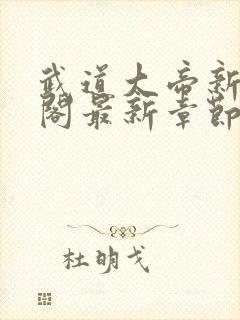 武道大帝新
阁最新章节
杜明戈